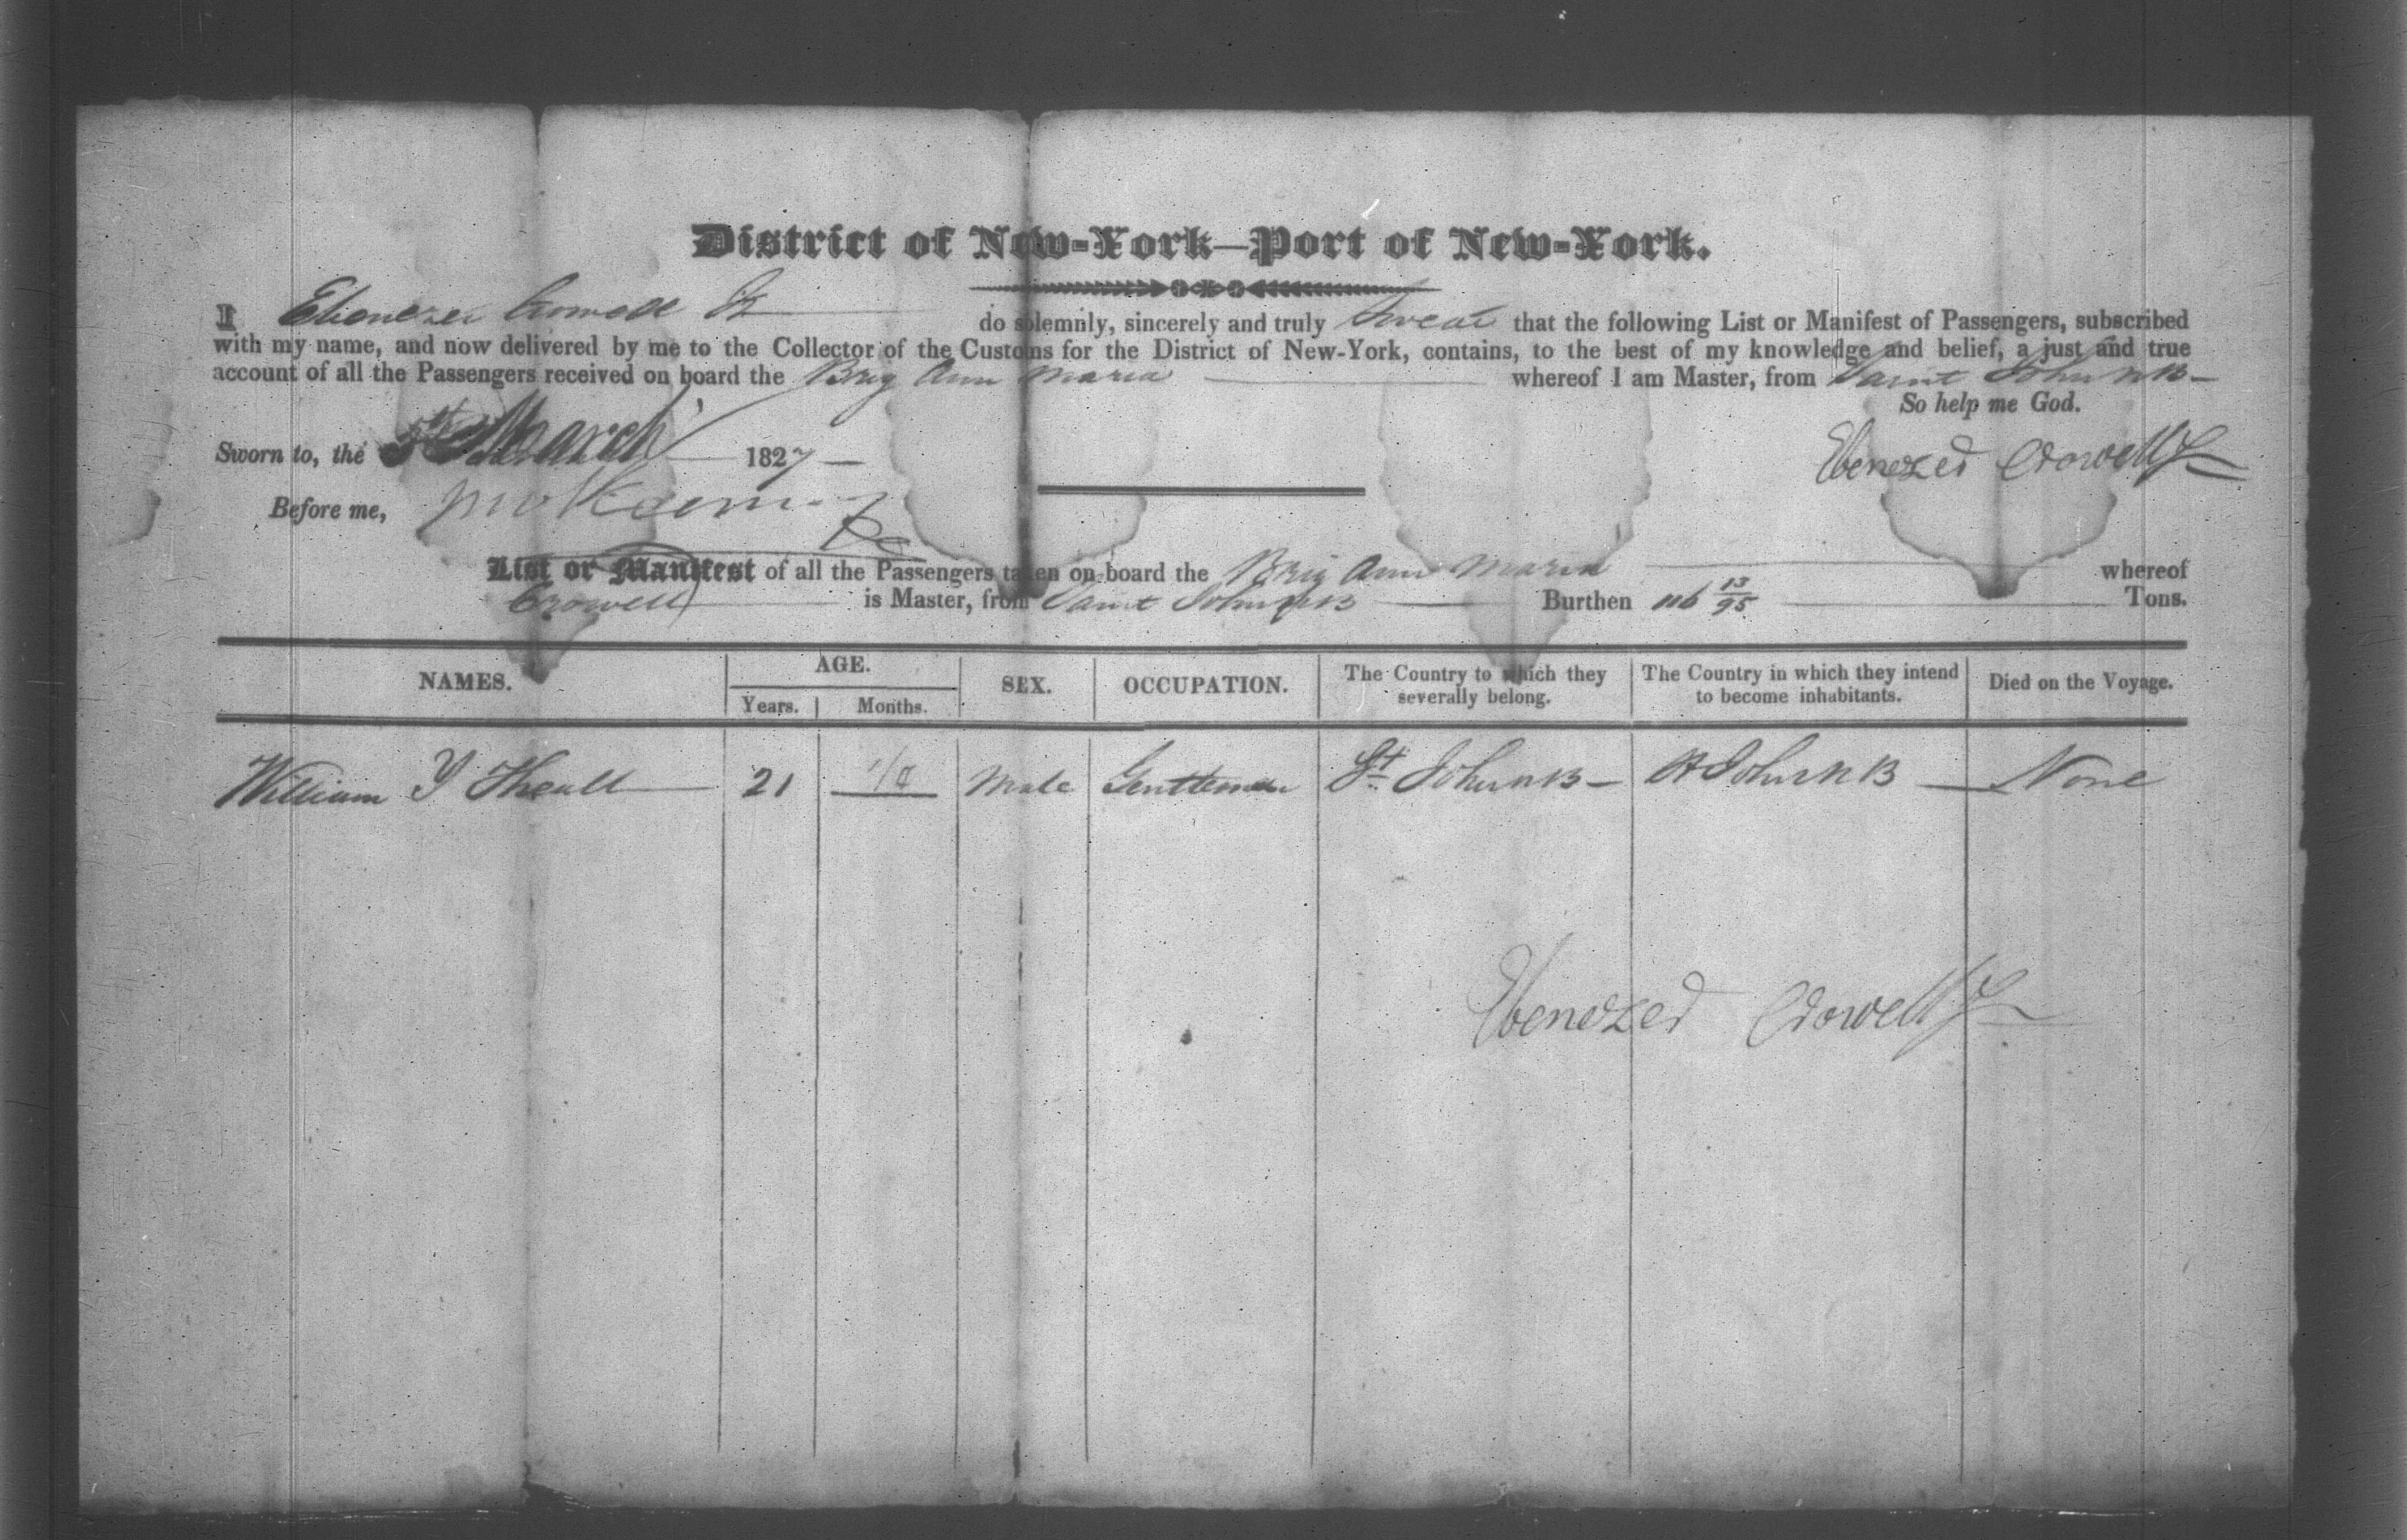 District of New-York—Port of New-York.
I Ebenezer Crowell Jr do solemnly, sincerely and truly swear that the following List or Manifest of Passengers, subscribed
with my name, and now delivered by me to the Collector of the Customs for the District of New-York, contains, to the best of my knowledge and belief, a just and true
account of all the Passengers received on board the Brig Ann Maria whereof I am Master, from Saint John NB
So help me God.
Sworn to, the 5th March 1827
Ebenezer Crowell Jr
Before me,
List or Manifest of all the Passengers taken on board the Brig Ann Maria whereof
Crowell is Master, from Saint John NB Burthen 116 13/95 Tons.
NAMES. AGE. SEX. OCCUPATION. The Country to which they severally belong. The Country in which they intend to become inhabitants. Died on the Voyage.
Years. Months.
William Y Theall 21 Male Gentleman St John NB St John NB None
Ebenezer Crowell Jr